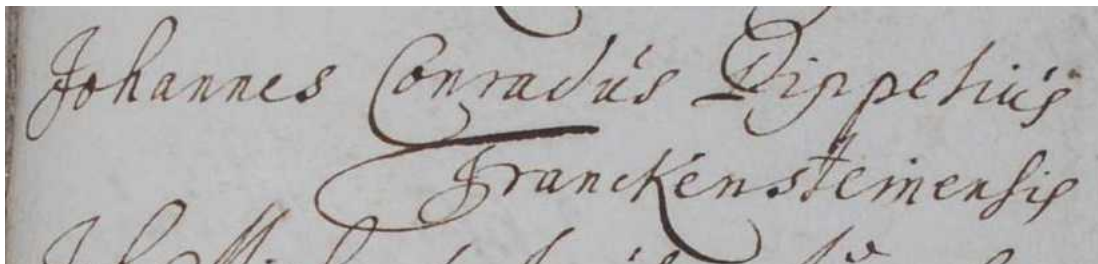 Johannes Conradus Dippelius
Franckensteinensis